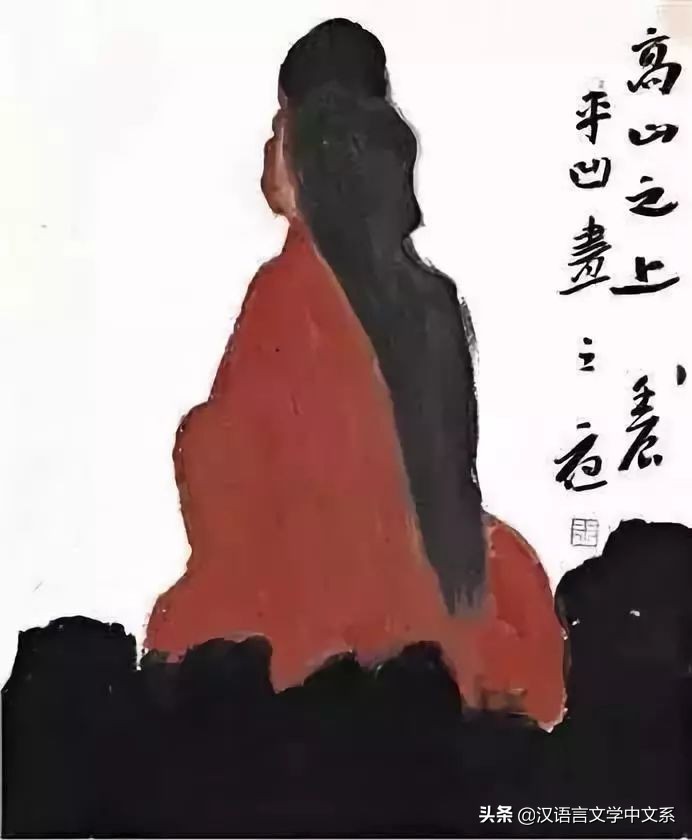 高山之上
平凹畫
壬辰
头条 @汉语言文学中文系